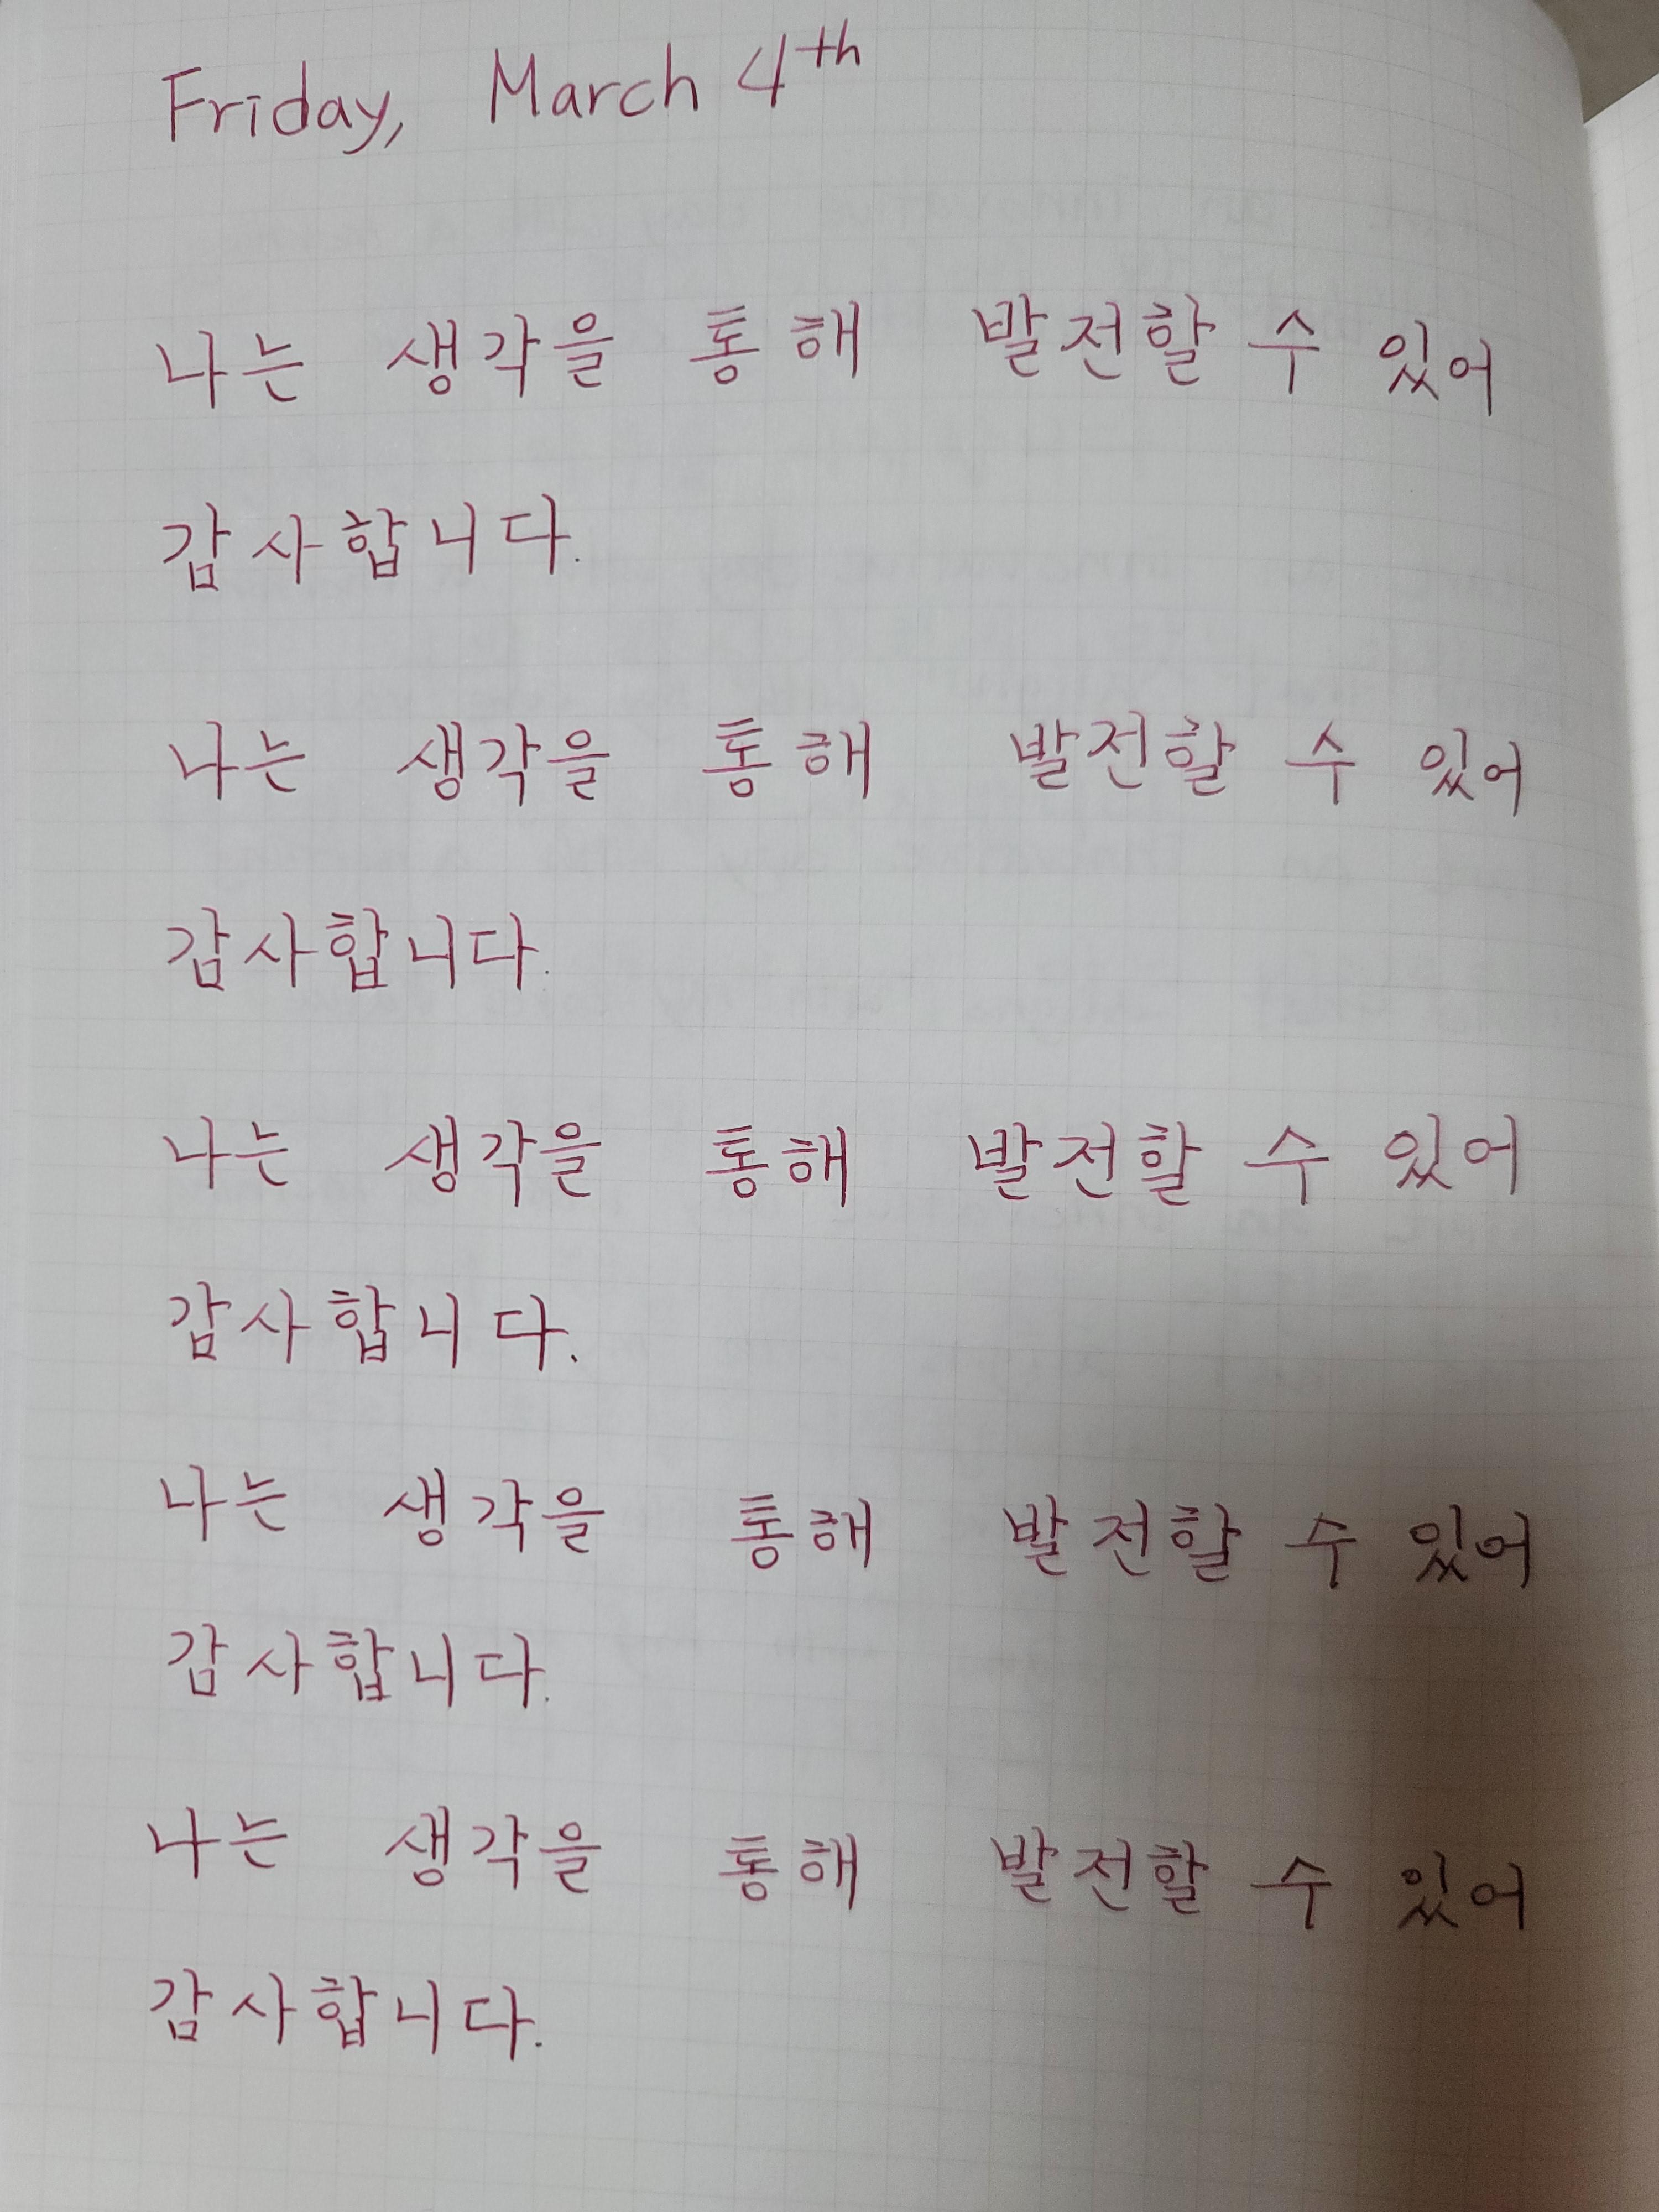 Friday, March 4th
나는 생각을 통해 발전할 수 있어
감사합니다.
나는 생각을 통해 발전할 수 있어
감사합니다.
나는 생각을 통해 발전할 수 있어
감사합니다.
나는 생각을 통해 발전할 수 있어
감사합니다.
나는 생각을 통해 발전할 수 있어
감사합니다.